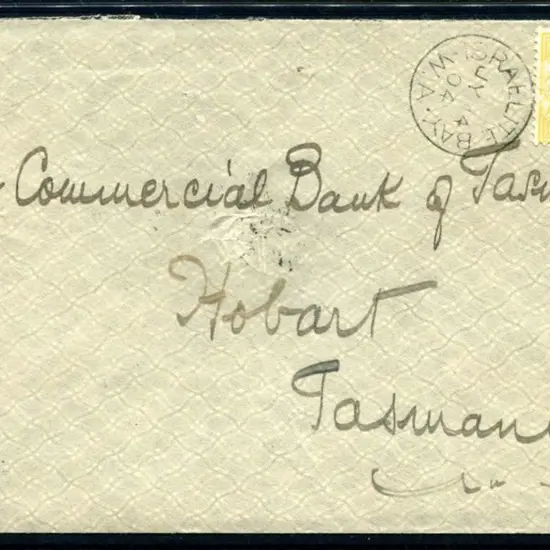 ISRAELITE BAY. W.A.
JY 4
04
Commercial Bank of Tasm
Hobart
Tasmani